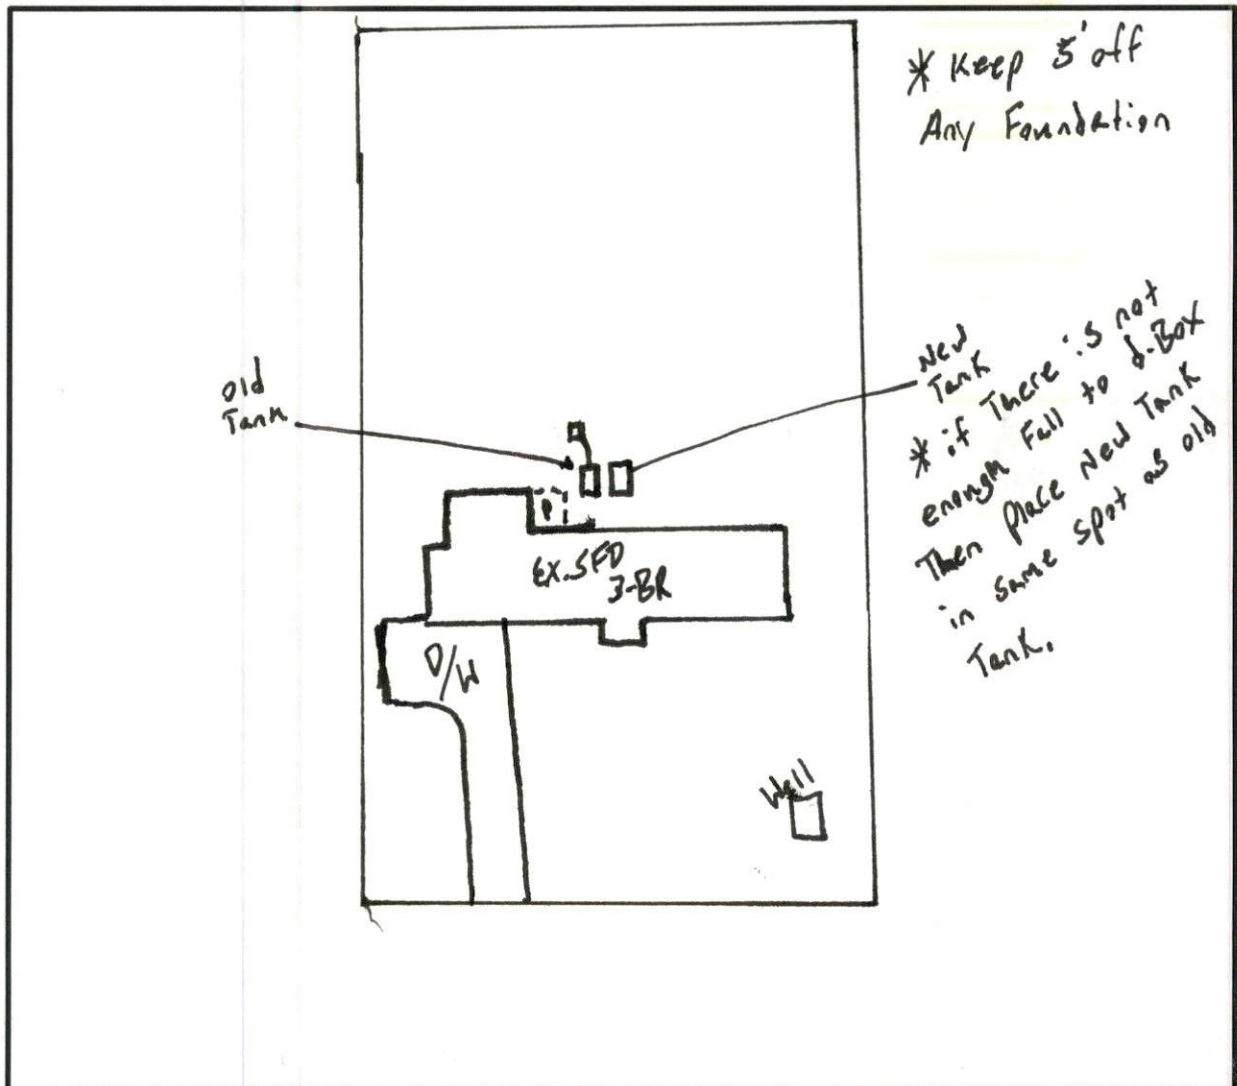 * Keep 5' off
Any Foundation
old
Tank
New
Tank
* if There is not
enough Fall to d-Box
Then place New Tank
in same spot as old
Tank.
P
EX. SFD
3-BR
D/W
Well